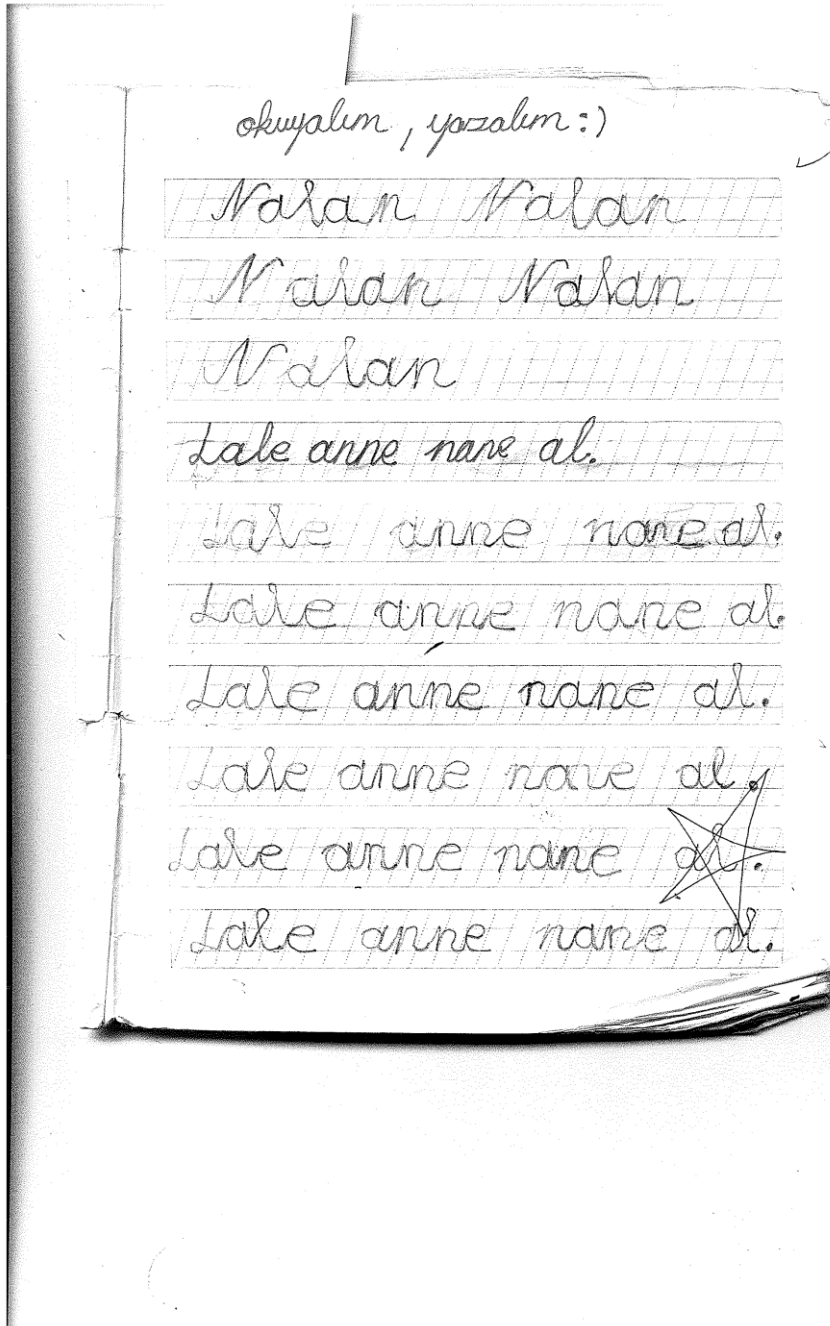 okuyalım, yazalım :)
Nalan Nalan
Nalan Nalan
Nalan
Lale anne nane al.
Lale anne nane al.
Lale anne nane al.
Lale anne nane al.
Lale anne nane al.
Lale anne nane al.
Lale anne nane al.